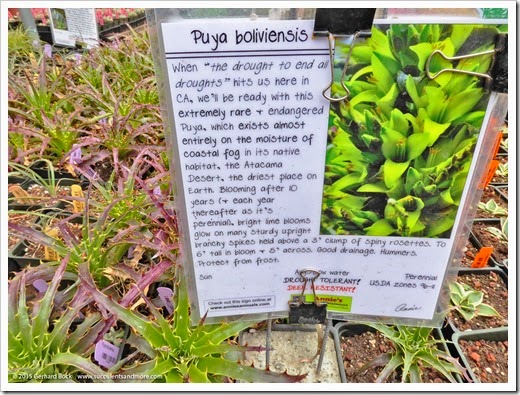 Puya boliviensis
When "the drought to end all
droughts" hits us here in
CA, we'll be ready with this
extremely rare & endangered
Puya, which exists almost
entirely on the moisture of
coastal fog in its native
habitat, the Atacama
Desert, the driest place on
Earth. Blooming after 10
years (& each year
thereafter as it's
perennial), bright lime blooms
glow on many sturdy upright
branchy spikes held above a 3' clump of spiny rosettes. To
6' tall in bloom & 5' across. Good drainage. Hummers.
Protect from frost.
Sun
water
Perennial
DROUGHT TOLERANT!
USDA zones
DEER RESISTANT!
Check out this sign online at
www.anniesannuals.com
Annie's
Annie
© 2015 Gerhard Bock www.succulentsandmore.com